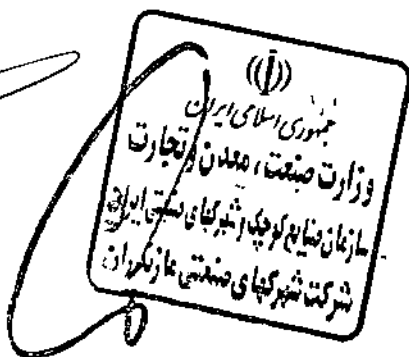 جمهوری اسلامی ایران
وزارت صنعت ، معدن و تجارت
سازمان صنایع کوچک و شهرکهای صنعتی ایران
شرکت شهرکهای صنعتی مازندران